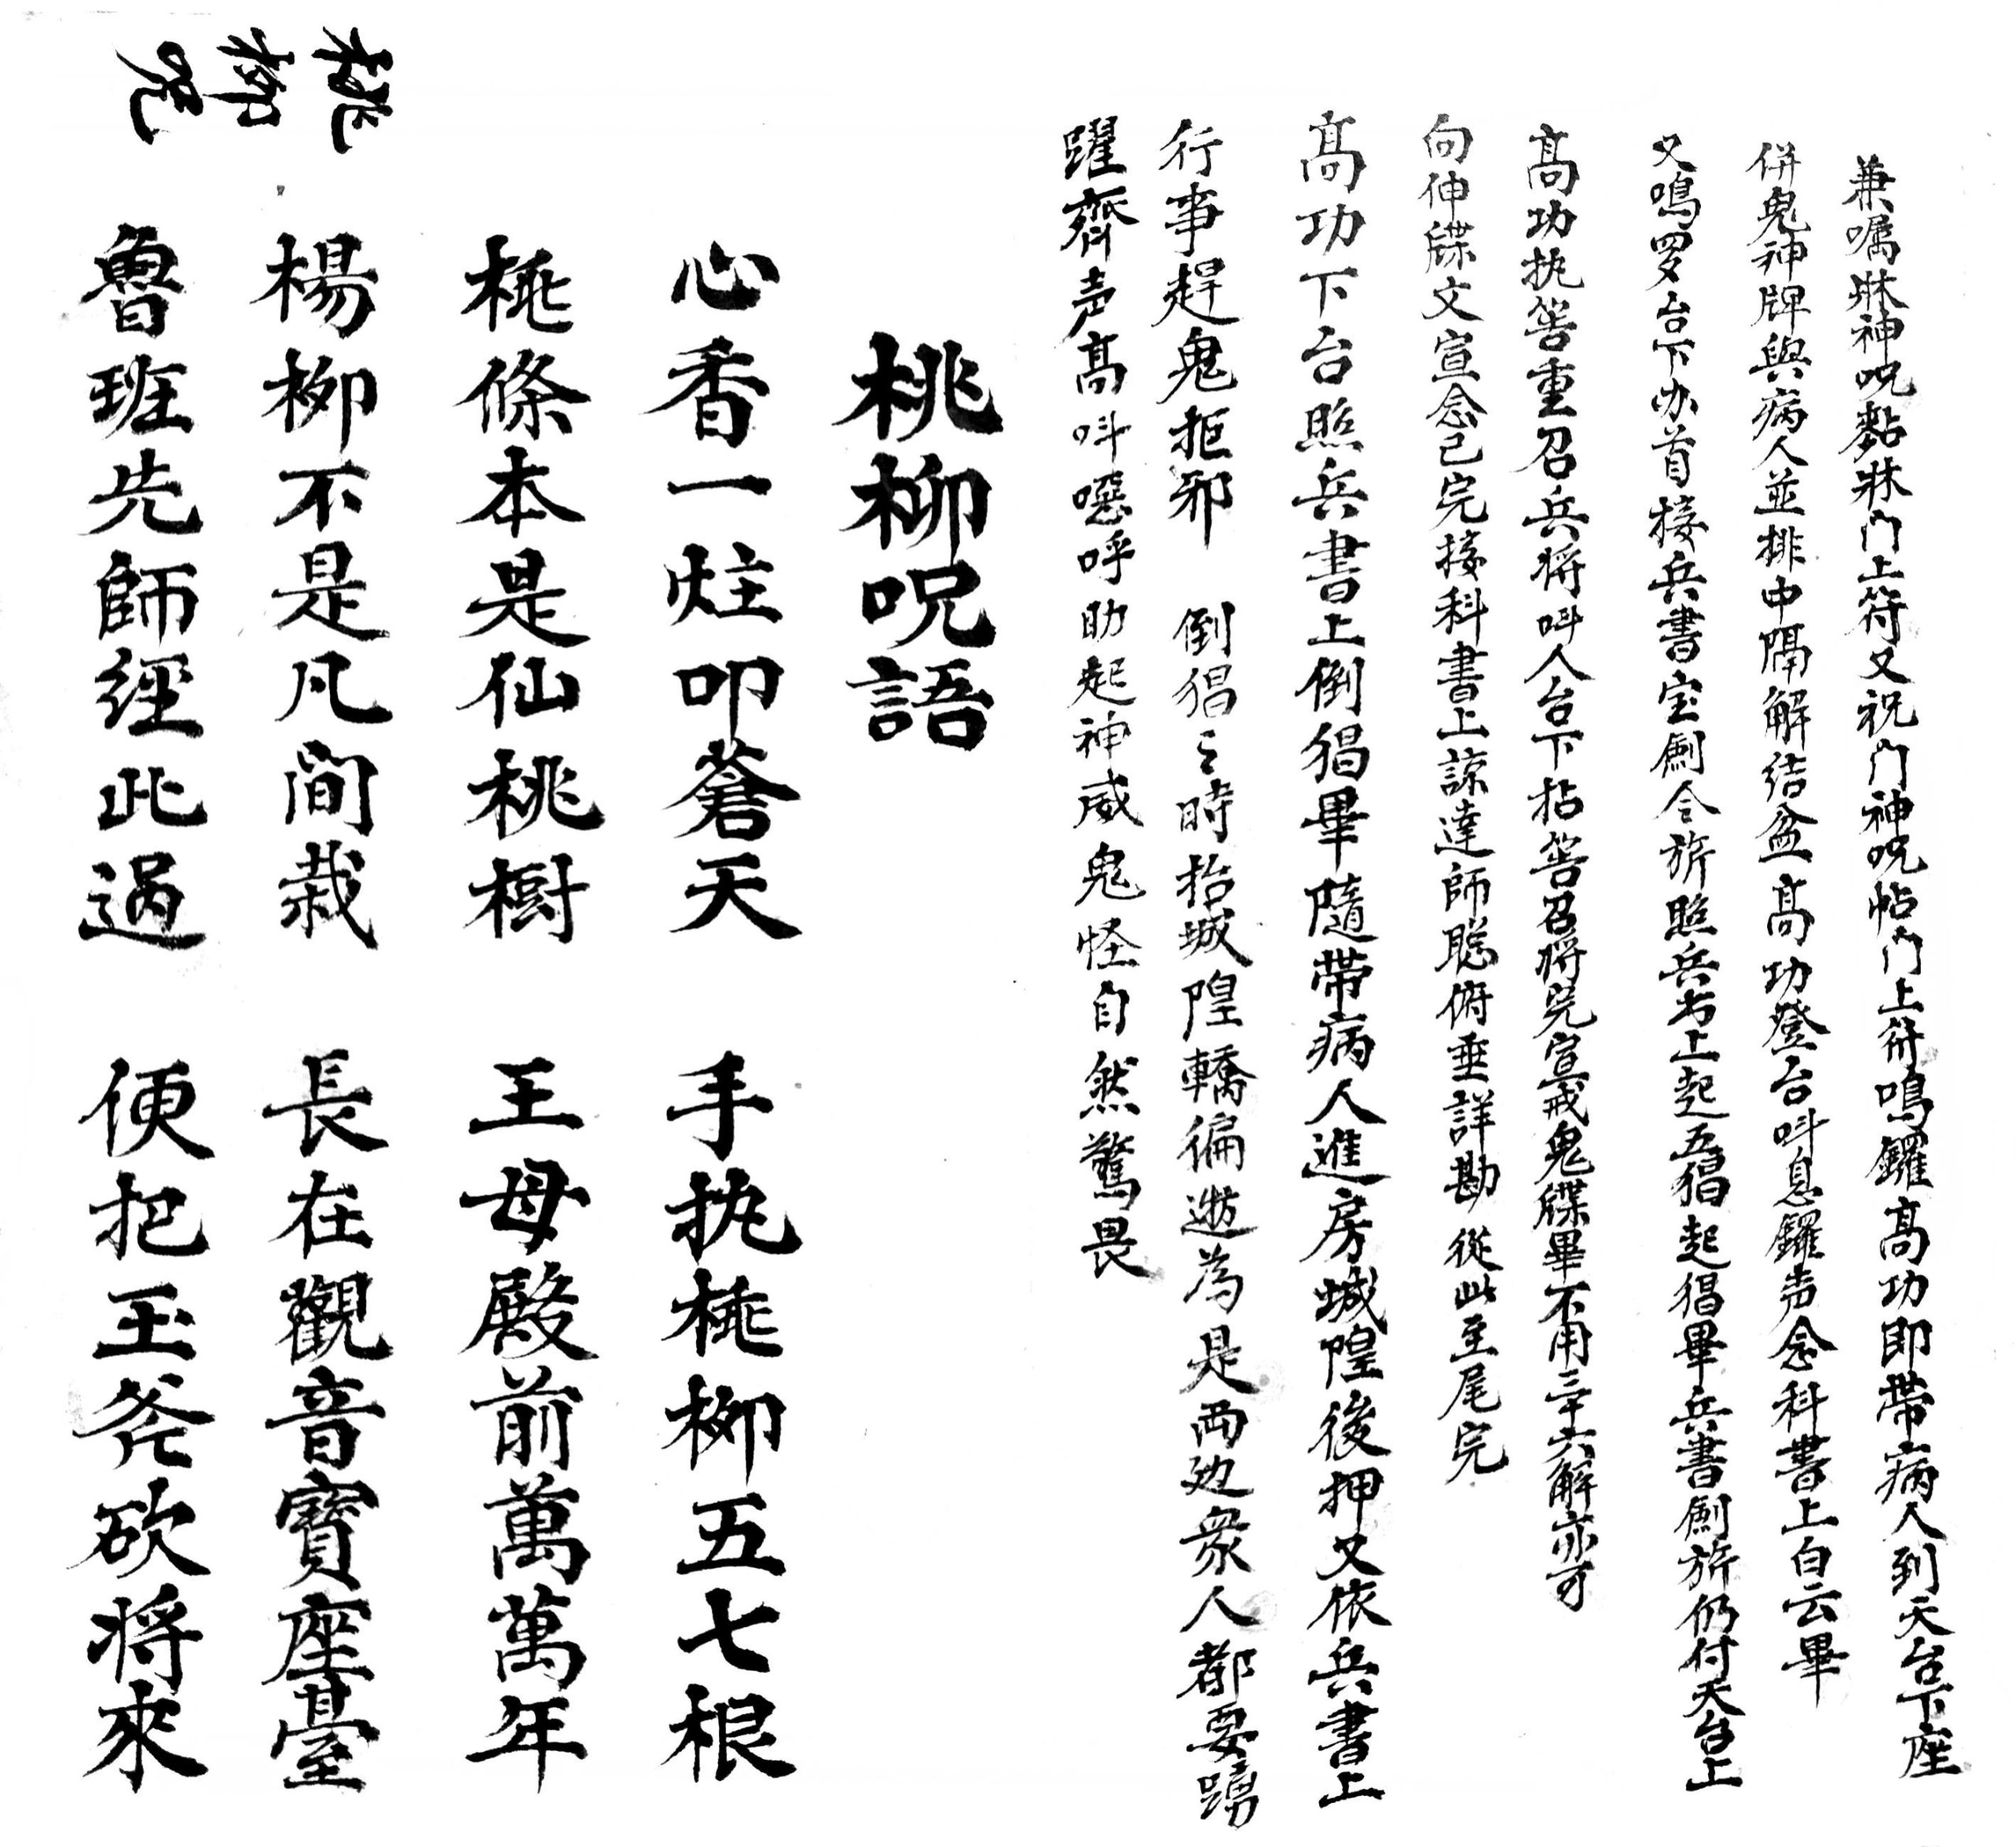 兼嘱牀神呪黏牀门上符又祝门神呪帖门上符鳴鑼高功即帶病人到天台下座
併鬼神牌與病人並排中隔解结盆高功登台呌息鑼声念科書上白云畢
又鳴罗台下办首接兵書宝劍令旂照兵书上起五猖起猖畢兵書劍旂仍付天台上
高功执筶重召兵将呌人台下拈筶召将完宣戒鬼牒畢不用三十六解亦可
向伸牒文宣念已完接科書上諒達師聡俯垂詳勘從此至尾完
高功下台照兵書上倒猖畢隨帶病人進房城隍後押又依兵書上
行事趕鬼拒邪 倒猖之時抬城隍轎徧遊為是両边衆人都要踴
躍齊声高呌噁呼助起神威鬼怪自然驚畏
桃柳呪語
心香一炷叩蒼天 手执桃柳五七根
桃條本是仙桃樹 王母殿前萬萬年
楊柳不是凡间栽 長在觀音寶座臺
魯班先師經此過 便把玉斧砍将來